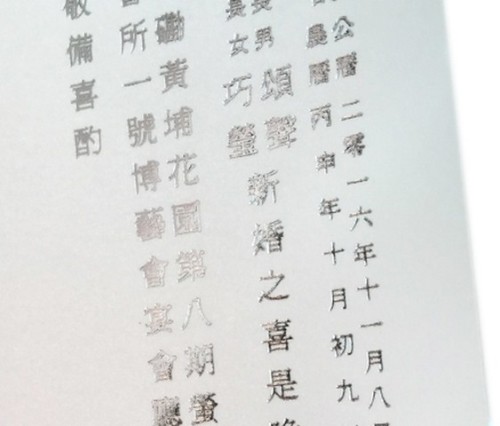 公曆二零一六年十一月八
農曆丙申年十月初九
長男頌聲
長女巧瑩
新婚之喜是晚
磡黃埔花園第八期螢
所一號博藝會宴會廳
敬備喜酌